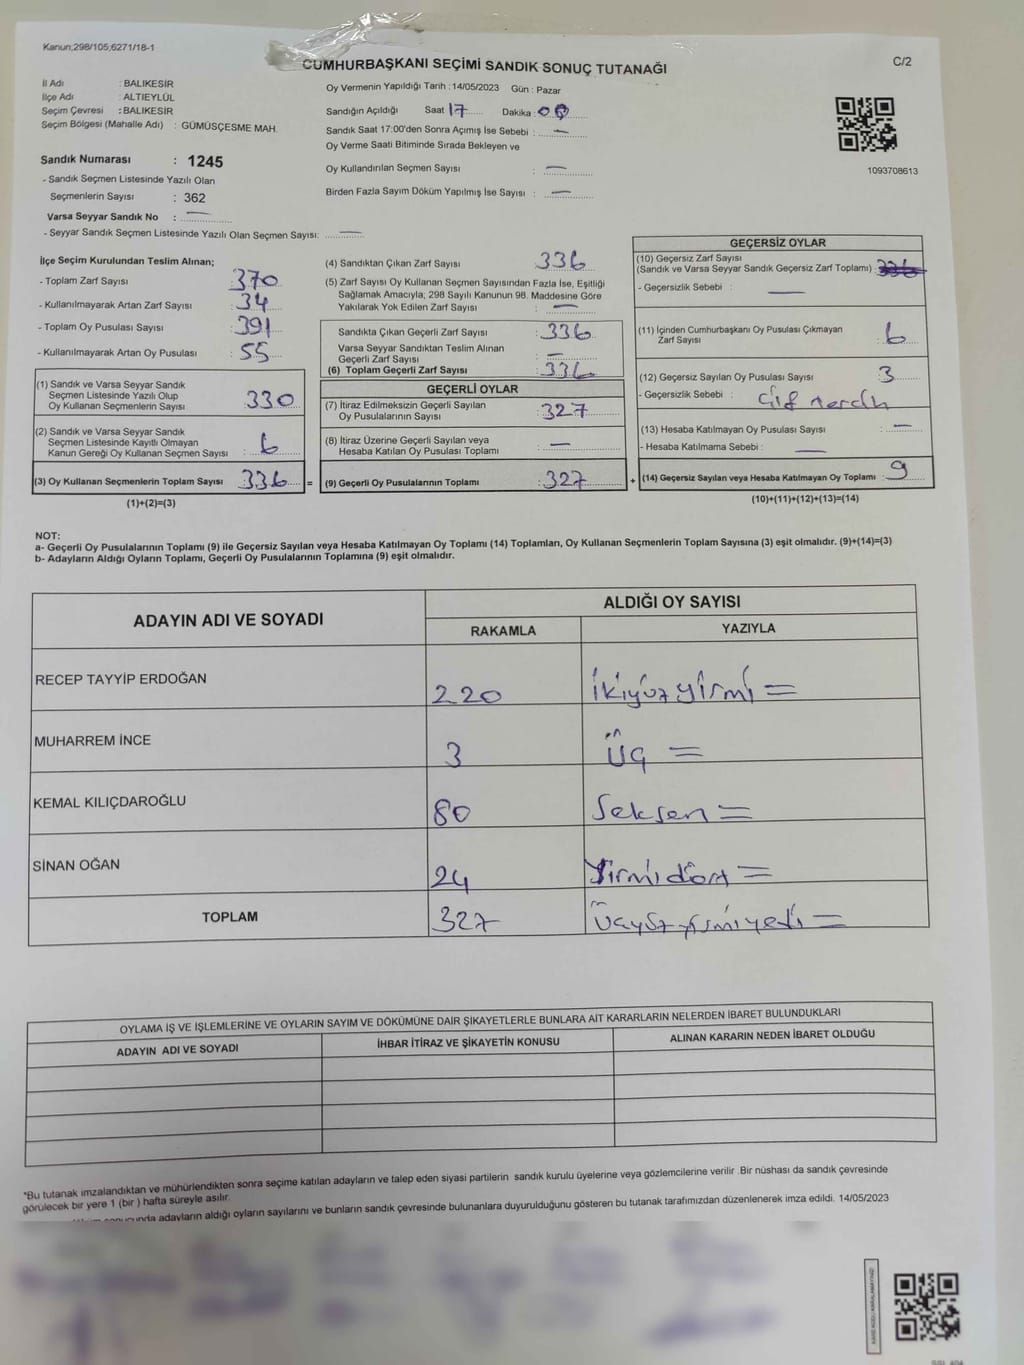 Kanun;298/105;6271/18-1
C/2
CUMHURBAŞKANI SEÇİMİ SANDIK SONUÇ TUTANAĞI
İl Adı : BALIKESİR
İlçe Adı : ALTIEYLÜL
Seçim Çevresi : BALIKESİR
Seçim Bölgesi (Mahalle Adı) : GÜMÜŞÇEŞME MAH.
Sandık Numarası : 1245
- Sandık Seçmen Listesinde Yazılı Olan
Seçmenlerin Sayısı : 362
Varsa Seyyar Sandık No : —
- Seyyar Sandık Seçmen Listesinde Yazılı Olan Seçmen Sayısı: —
Oy Vermenin Yapıldığı Tarih : 14/05/2023 Gün : Pazar
Sandığın Açıldığı Saat 17 Dakika : 00
Sandık Saat 17:00'den Sonra Açımış İse Sebebi : —
Oy Verme Saati Bitiminde Sırada Bekleyen ve
Oy Kullandırılan Seçmen Sayısı : —
Birden Fazla Sayım Döküm Yapılmış İse Sayısı : —
1093708613
İlçe Seçim Kurulundan Teslim Alınan;
- Toplam Zarf Sayısı : 370
- Kullanılmayarak Artan Zarf Sayısı : 34
- Toplam Oy Pusulası Sayısı : 391
- Kullanılmayarak Artan Oy Pusulası : 55
(1) Sandık ve Varsa Seyyar Sandık
Seçmen Listesinde Yazılı Olup
Oy Kullanan Seçmenlerin Sayısı : 330
(2) Sandık ve Varsa Seyyar Sandık
Seçmen Listesinde Kayıtlı Olmayan
Kanun Gereği Oy Kullanan Seçmen Sayısı : 6
(3) Oy Kullanan Seçmenlerin Toplam Sayısı : 336 =
(1)+(2)=(3)
(4) Sandıktan Çıkan Zarf Sayısı : 336
(5) Zarf Sayısı Oy Kullanan Seçmen Sayısından Fazla İse, Eşitliği
Sağlamak Amacıyla; 298 Sayılı Kanunun 98. Maddesine Göre
Yakılarak Yok Edilen Zarf Sayısı : —
Sandıkta Çıkan Geçerli Zarf Sayısı : 336
Varsa Seyyar Sandıktan Teslim Alınan
Geçerli Zarf Sayısı : —
(6) Toplam Geçerli Zarf Sayısı : 336
GEÇERLİ OYLAR
(7) İtiraz Edilmeksizin Geçerli Sayılan
Oy Pusulalarının Sayısı : 327
(8) İtiraz Üzerine Geçerli Sayılan veya
Hesaba Katılan Oy Pusulası Toplamı : —
(9) Geçerli Oy Pusulalarının Toplamı : 327 +
GEÇERSİZ OYLAR
(10) Geçersiz Zarf Sayısı
(Sandık ve Varsa Seyyar Sandık Geçersiz Zarf Toplamı) : 336
- Geçersizlik Sebebi : —
(11) İçinden Cumhurbaşkanı Oy Pusulası Çıkmayan
Zarf Sayısı : 6
(12) Geçersiz Sayılan Oy Pusulası Sayısı : 3
- Geçersizlik Sebebi :
(13) Hesaba Katılmayan Oy Pusulası Sayısı : —
- Hesaba Katılmama Sebebi : —
(14) Geçersiz Sayılan veya Hesaba Katılmayan Oy Toplamı : 9
(10)+(11)+(12)+(13)=(14)
NOT:
a- Geçerli Oy Pusulalarının Toplamı (9) ile Geçersiz Sayılan veya Hesaba Katılmayan Oy Toplamı (14) Toplamları, Oy Kullanan Seçmenlerin Toplam Sayısına (3) eşit olmalıdır. (9)+(14)=(3)
b- Adayların Aldığı Oyların Toplamı, Geçerli Oy Pusulalarının Toplamına (9) eşit olmalıdır.
ADAYIN ADI VE SOYADI
ALDIĞI OY SAYISI
RAKAMLA YAZIYLA
RECEP TAYYİP ERDOĞAN 220 İkiyüzyirmi =
MUHARREM İNCE 3 Üç =
KEMAL KILIÇDAROĞLU 80 Seksen =
SİNAN OĞAN 24 Yirmidört =
TOPLAM 327 Üçyüzyirmiyedi =
OYLAMA İŞ VE İŞLEMLERİNE VE OYLARIN SAYIM VE DÖKÜMÜNE DAİR ŞİKAYETLERLE BUNLARA AİT KARARLARIN NELERDEN İBARET BULUNDUKLARI
ADAYIN ADI VE SOYADI İHBAR İTİRAZ VE ŞİKAYETİN KONUSU ALINAN KARARIN NEDEN İBARET OLDUĞU
*Bu tutanak imzalandıktan ve mühürlendikten sonra seçime katılan adayların ve talep eden siyasi partilerin sandık kurulu üyelerine veya gözlemcilerine verilir .Bir nüshası da sandık çevresinde
görülecek bir yere 1 (bir ) hafta süreyle asılır.
adayların aldığı oyların sayılarını ve bunların sandık çevresinde bulunanlara duyurulduğunu gösteren bu tutanak tarafımızdan düzenlenerek imza edildi. 14/05/2023